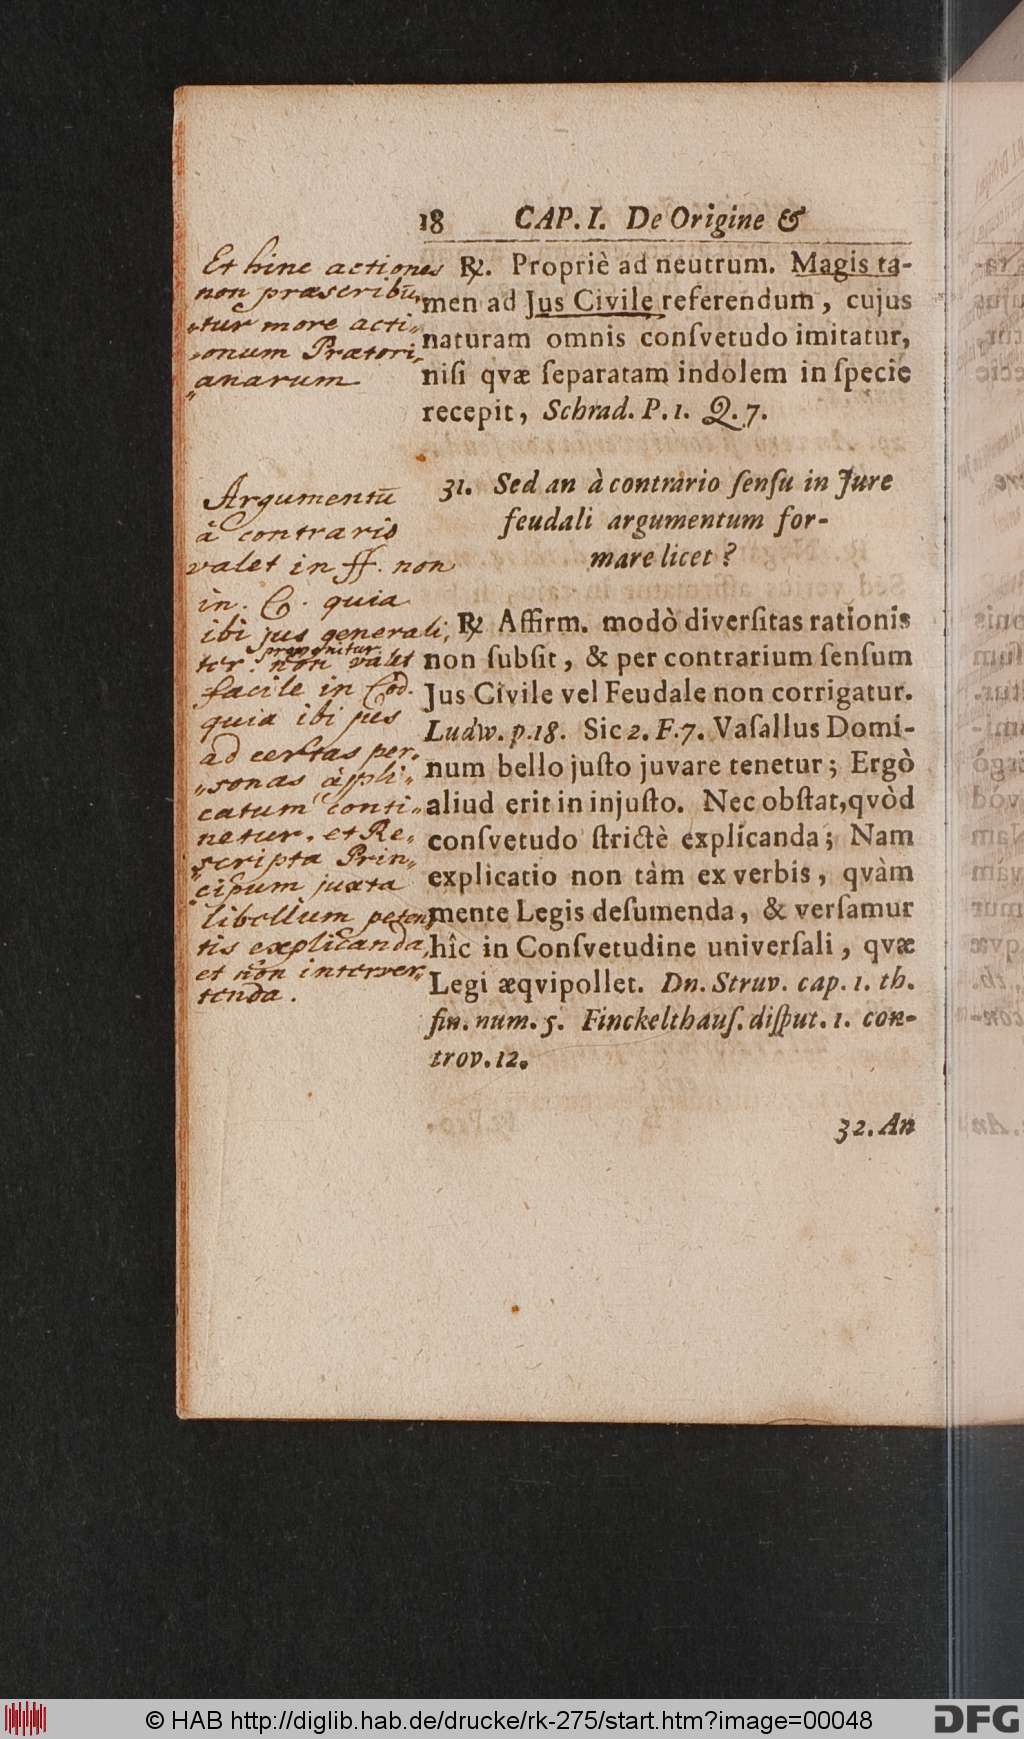 18 CAP. I. De Origine &
℞. Propriè ad neutrum. Magis ta-
men ad Jus Civile referendum, cujus
naturam omnis conſvetudo imitatur,
niſi qvæ ſeparatam indolem in ſpecie
recepit, Schrad. P. 1. Q. 7.
31. Sed an à contrario ſenſu in Jure
feudali argumentum for-
mare licet?
℞ Affirm. modò diverſitas rationis
non ſubſit, & per contrarium ſenſum
Jus Civile vel Feudale non corrigatur.
Ludw. p. 18. Sic 2. F. 7. Vaſallus Domi-
num bello juſto juvare tenetur; Ergò
aliud erit in injuſto. Nec obſtat, qvòd
conſvetudo ſtrictè explicanda; Nam
explicatio non tàm ex verbis, qvàm
mente Legis deſumenda, & verſamur
hîc in Conſvetudine univerſali, qvæ
Legi æqvipollet. Dn. Struv. cap. 1. th.
fin. num. 5. Finckelthauſ. diſput. 1. con-
trov. 12.
32. An
Et hinc actiones
non præscribū„
„tur more acti„
„onum Prætori„
„anarum
Argumentū
à contrario
valet in ff. non
in. C. quia
ibi jus generali„
ter. non valet
facile in Cod.
quia ibi jus
ad certas per„
„sonas appli„
catum conti„
netur. et Re„
„scripta Prin„
„cipum juxta
libellum peten„
tis explicanda,
et non interver„
tenda.
© HAB http://diglib.hab.de/drucke/rk-275/start.htm?image=00048
DFG